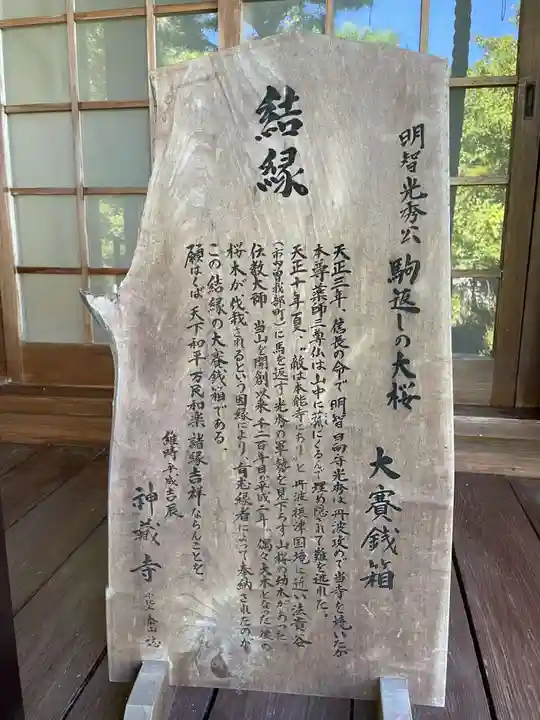 結縁
明智光秀公 駒返しの大桜
大賽銭箱
天正三年、信長の命で明智日向守光秀は丹波攻めで当寺を焼いたが
本尊薬師三尊仏は山中に菰にくるんで埋め隠されて難を逃れた。
天正十年夏、"敵は本能寺にあり"と丹波摂津国境に近い法貴谷
(市内曽我部町)に馬を返す光秀の軍勢を見下ろす山桜の幼木があった。
伝教大師 当山を開創以来千二百年目の平成二年、偶々大木となった彼の
桜木が伐裁されるという因縁により、有志縁者によって奉納されたのが
この結縁の大賽銭箱である。
願はくば 天下和平 万民和楽 諸縁吉祥ならんことを。
維時平成吉辰
神蔵寺